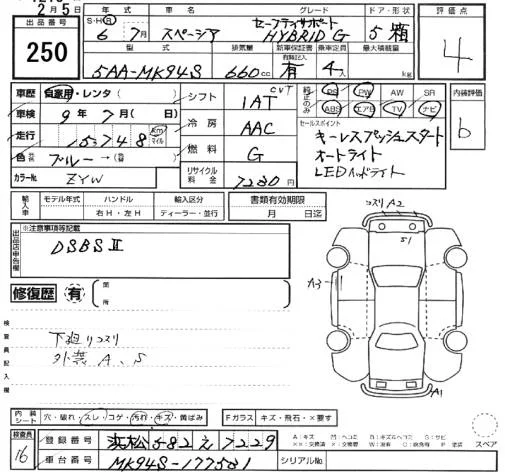 2月5日
出品番号 年式 グレード ドア・形状 評価点
250
S・H・R 6年 7月 スペーシア セーフティサポート HYBRID G 5 箱
4
型式 排気量 新車保証書 有無記入 乗車定員 最大積載量
5AA-MK94S 660cc 有 4人 kg
車歴 自家用・レンタ( ) シフト CVT 1AT
純正のみ PS PW AW SR 内装評価
ABS エアB TV ナビ b
車検 9年 7月(日) 冷房 AAC
セールスポイント
キーレスプッシュスタート
オートライト
LEDヘッドライト
走行 15748 Km マイル 燃料 G
色 ブルー→( )
カラーNo. ZYW リサイクル料金 7230円
輸入車 モデル年式 ハンドル 輸入区分 書類有効期限
右H・左H ディーラー・並行 月 日迄
出品店申告欄 ※注意事項等記載
DSBSⅡ
コスリ A2
S1
A3
A1
修復歴 有 箇所
検査員記入欄
下廻りコスリ
外装 A、S
内装シート 穴・破れ・スレ・コゲ・汚れ・キズ・黄ばみ Fガラス キズ・飛石・×要す
検査員 16
登録番号 浜松 582 え 7229
車台番号 MK94S-177581 シリアルNo.
A:キズ U:ヘコミ B:キズとヘコミ S:サビ
××:交換済 X:交換要 W:波有 C:腐食有 P:塗装
スペア